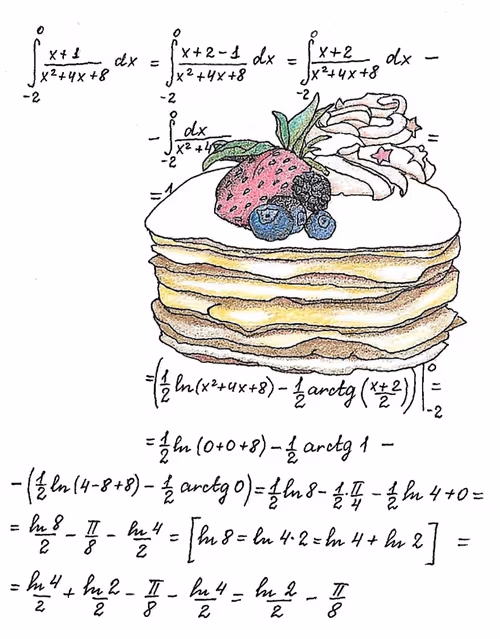 ∫₋₂⁰ (x+1)/(x²+4x+8) dx = ∫₋₂⁰ (x+2-1)/(x²+4x+8) dx = ∫₋₂⁰ (x+2)/(x²+4x+8) dx −
− ∫₋₂⁰ dx/(x²+4 =
=1
=(1/2 ln(x²+4x+8) − 1/2 arctg((x+2)/2))|₋₂⁰ =
= 1/2 ln(0+0+8) − 1/2 arctg 1 −
−(1/2 ln(4-8+8) − 1/2 arctg 0) = 1/2 ln 8 − 1/2·π/4 − 1/2 ln 4 + 0 =
= ln 8/2 − π/8 − ln 4/2 = [ln 8 = ln 4·2 = ln 4 + ln 2] =
= ln 4/2 + ln 2/2 − π/8 − ln 4/2 = ln 2/2 − π/8